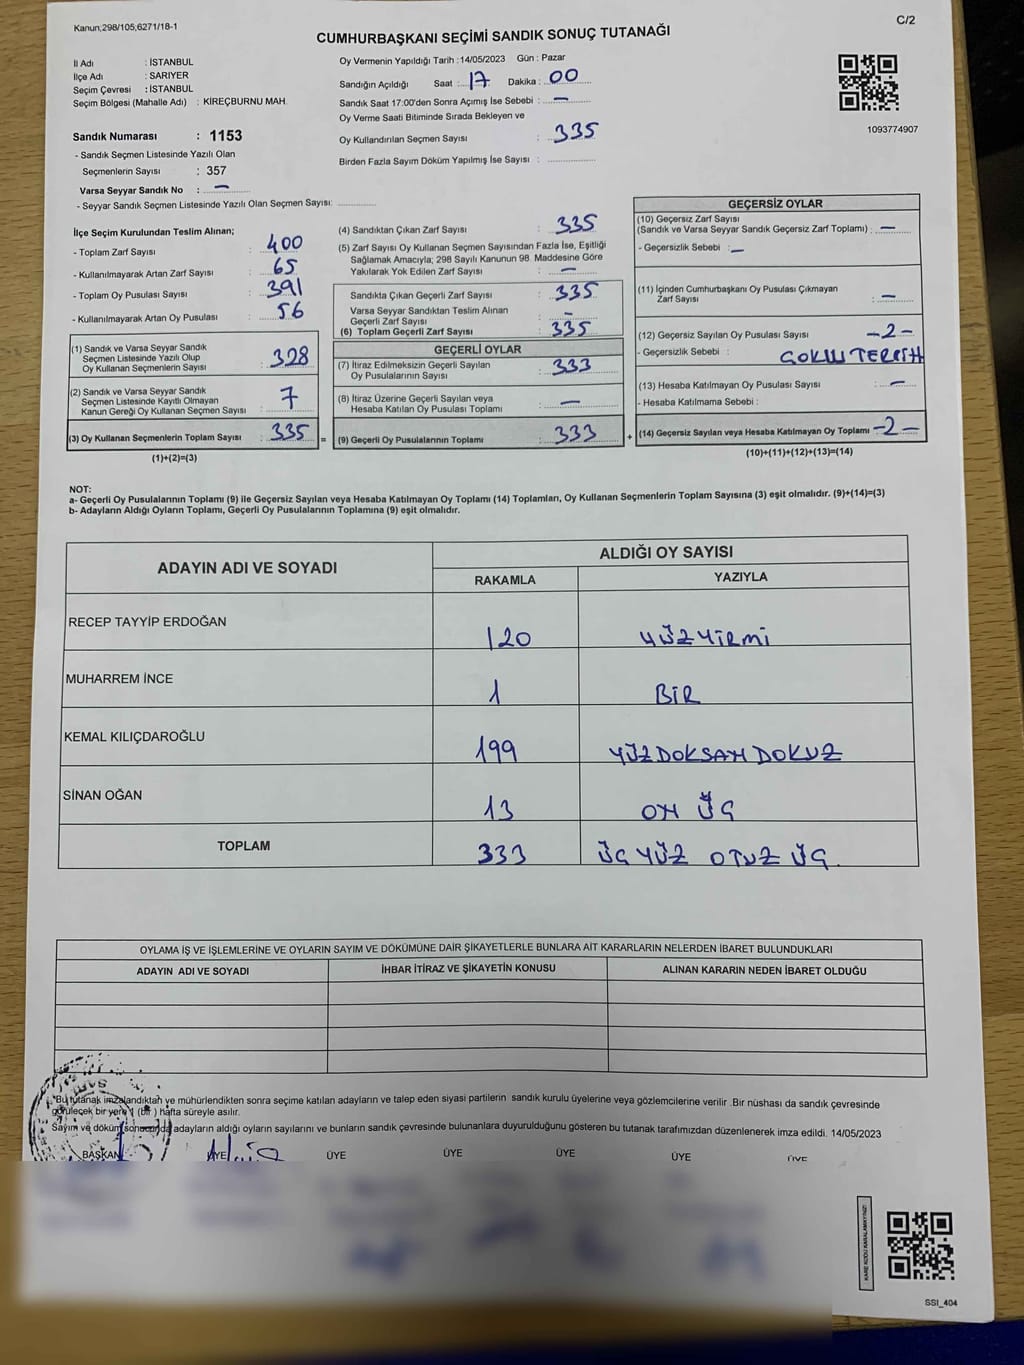 Kanun,298/105,6271/18-1
C/2
CUMHURBAŞKANI SEÇİMİ SANDIK SONUÇ TUTANAĞI
İl Adı : İSTANBUL
İlçe Adı : SARIYER
Seçim Çevresi : İSTANBUL
Seçim Bölgesi (Mahalle Adı) : KİREÇBURNU MAH.
Sandık Numarası : 1153
- Sandık Seçmen Listesinde Yazılı Olan
Seçmenlerin Sayısı : 357
Varsa Seyyar Sandık No : –
- Seyyar Sandık Seçmen Listesinde Yazılı Olan Seçmen Sayısı:
Oy Vermenin Yapıldığı Tarih :14/05/2023 Gün : Pazar
Sandığın Açıldığı Saat : 17 Dakika : 00
Sandık Saat 17:00'den Sonra Açımış İse Sebebi : –
Oy Verme Saati Bitiminde Sırada Bekleyen ve
Oy Kullandırılan Seçmen Sayısı : 335
Birden Fazla Sayım Döküm Yapılmış İse Sayısı :
1093774907
İlçe Seçim Kurulundan Teslim Alınan;
- Toplam Zarf Sayısı : 400
- Kullanılmayarak Artan Zarf Sayısı : 65
- Toplam Oy Pusulası Sayısı : 391
- Kullanılmayarak Artan Oy Pusulası : 56
(1) Sandık ve Varsa Seyyar Sandık
Seçmen Listesinde Yazılı Olup
Oy Kullanan Seçmenlerin Sayısı : 328
(2) Sandık ve Varsa Seyyar Sandık
Seçmen Listesinde Kayıtlı Olmayan
Kanun Gereği Oy Kullanan Seçmen Sayısı : 7
(3) Oy Kullanan Seçmenlerin Toplam Sayısı : 335 =
(1)+(2)=(3)
(4) Sandıktan Çıkan Zarf Sayısı : 335
(5) Zarf Sayısı Oy Kullanan Seçmen Sayısından Fazla İse, Eşitliği
Sağlamak Amacıyla; 298 Sayılı Kanunun 98. Maddesine Göre
Yakılarak Yok Edilen Zarf Sayısı : –
Sandıkta Çıkan Geçerli Zarf Sayısı : 335
Varsa Seyyar Sandıktan Teslim Alınan
Geçerli Zarf Sayısı : –
(6) Toplam Geçerli Zarf Sayısı : 335
GEÇERLİ OYLAR
(7) İtiraz Edilmeksizin Geçerli Sayılan
Oy Pusulalarının Sayısı : 333
(8) İtiraz Üzerine Geçerli Sayılan veya
Hesaba Katılan Oy Pusulası Toplamı : –
(9) Geçerli Oy Pusulalarının Toplamı : 333 +
GEÇERSİZ OYLAR
(10) Geçersiz Zarf Sayısı
(Sandık ve Varsa Seyyar Sandık Geçersiz Zarf Toplamı) : –
- Geçersizlik Sebebi : –
(11) İçinden Cumhurbaşkanı Oy Pusulası Çıkmayan
Zarf Sayısı : –
(12) Geçersiz Sayılan Oy Pusulası Sayısı –2–
- Geçersizlik Sebebi : ÇOKLU TERCİH
(13) Hesaba Katılmayan Oy Pusulası Sayısı : –
- Hesaba Katılmama Sebebi :
(14) Geçersiz Sayılan veya Hesaba Katılmayan Oy Toplamı –2–
(10)+(11)+(12)+(13)=(14)
NOT:
a- Geçerli Oy Pusulalarının Toplamı (9) ile Geçersiz Sayılan veya Hesaba Katılmayan Oy Toplamı (14) Toplamları, Oy Kullanan Seçmenlerin Toplam Sayısına (3) eşit olmalıdır. (9)+(14)=(3)
b- Adayların Aldığı Oyların Toplamı, Geçerli Oy Pusulalarının Toplamına (9) eşit olmalıdır.
ADAYIN ADI VE SOYADI
ALDIĞI OY SAYISI
RAKAMLA YAZIYLA
RECEP TAYYİP ERDOĞAN 120 YÜZYİRMİ
MUHARREM İNCE 1 BİR
KEMAL KILIÇDAROĞLU 199 YÜZDOKSAN DOKUZ
SİNAN OĞAN 13 ON ÜÇ
TOPLAM 333 ÜÇ YÜZ OTUZ ÜÇ.
OYLAMA İŞ VE İŞLEMLERİNE VE OYLARIN SAYIM VE DÖKÜMÜNE DAİR ŞİKAYETLERLE BUNLARA AİT KARARLARIN NELERDEN İBARET BULUNDUKLARI
ADAYIN ADI VE SOYADI İHBAR İTİRAZ VE ŞİKAYETİN KONUSU ALINAN KARARIN NEDEN İBARET OLDUĞU
"Bu tutanak imzalandıktan ve mühürlendikten sonra seçime katılan adayların ve talep eden siyasi partilerin sandık kurulu üyelerine veya gözlemcilerine verilir .Bir nüshası da sandık çevresinde
görülecek bir yere 1 (bir ) hafta süreyle asılır.
Sayım ve döküm sonucunda adayların aldığı oyların sayılarını ve bunların sandık çevresinde bulunanlara duyurulduğunu gösteren bu tutanak tarafımızdan düzenlenerek imza edildi. 14/05/2023
BAŞKAN ÜYE ÜYE ÜYE ÜYE ÜYE ÜYE
KARE KODU KARALAMAYINIZ!
SSI_404